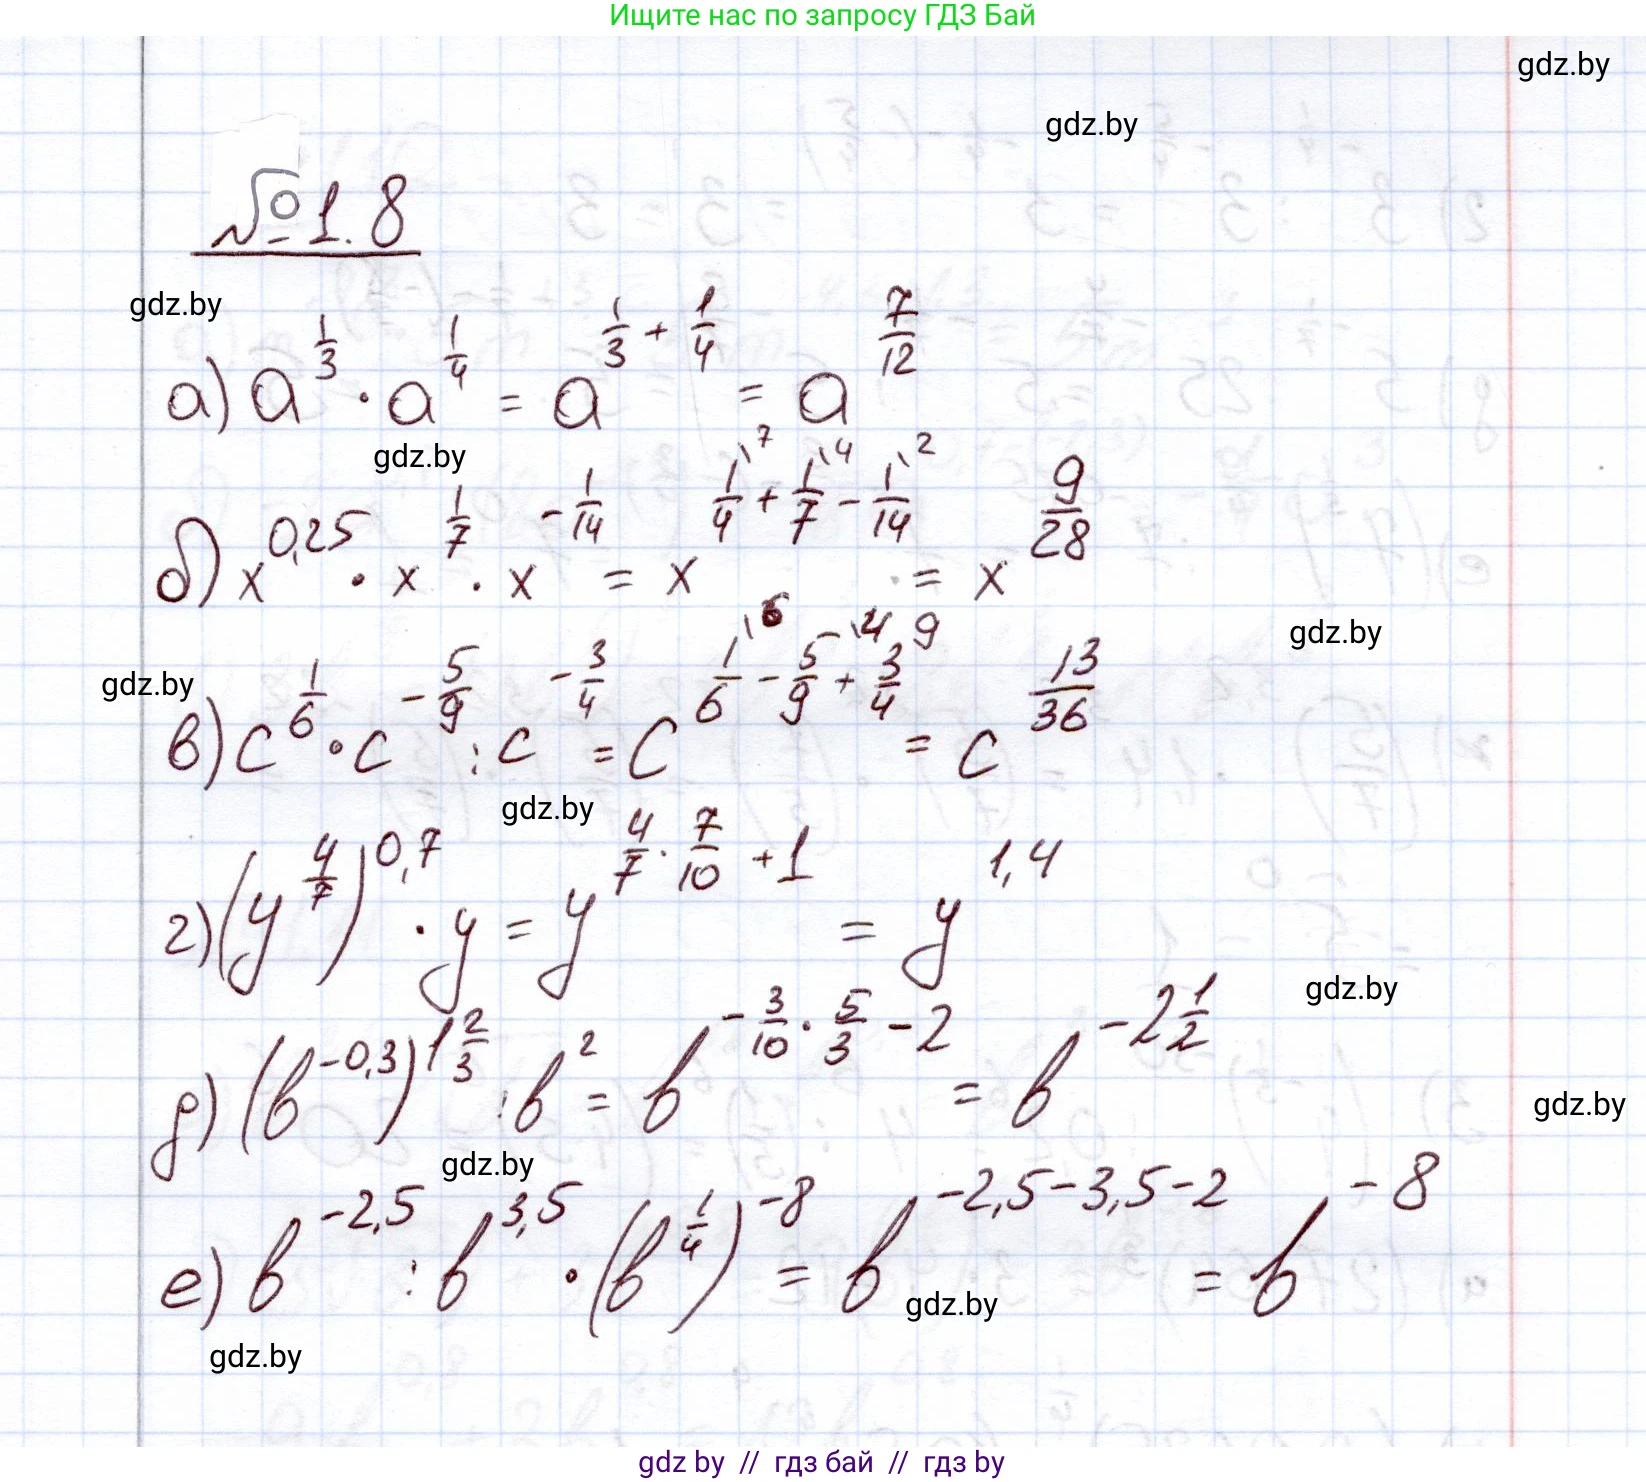 Ищите нас по запросу ГДЗ Бай
gdz.by
gdz.by
№ 1.8
gdz.by
а) a^(1/3) · a^(1/4) = a^(1/3 + 1/4) = a^(7/12)
gdz.by
б) x^(0,25) · x^(1/7) · x^(-1/14) = x^(1/4\7 + 1/7\4 - 1/14\2) = x^(9/28)
gdz.by
gdz.by
в) c^(1/6) · c^(-5/9) : c^(-3/4) = c^(1/6\6 - 5/9\4 + 3/4\9) = c^(13/36)
gdz.by
г) (y^(4/7))^(0,7) · y = y^(4/7 · 7/10 + 1) = y^(1,4)
gdz.by
д) (b^(-0,3))^(1 2/3) : b^2 = b^(-3/10 · 5/3 - 2) = b^(-2 1/2)
gdz.by
gdz.by
е) b^(-2,5) : b^(3,5) · (b^(1/4))^(-8) = b^(-2,5-3,5-2) = b^(-8)
gdz.by
gdz.by
gdz by // гдз бай // гдз by